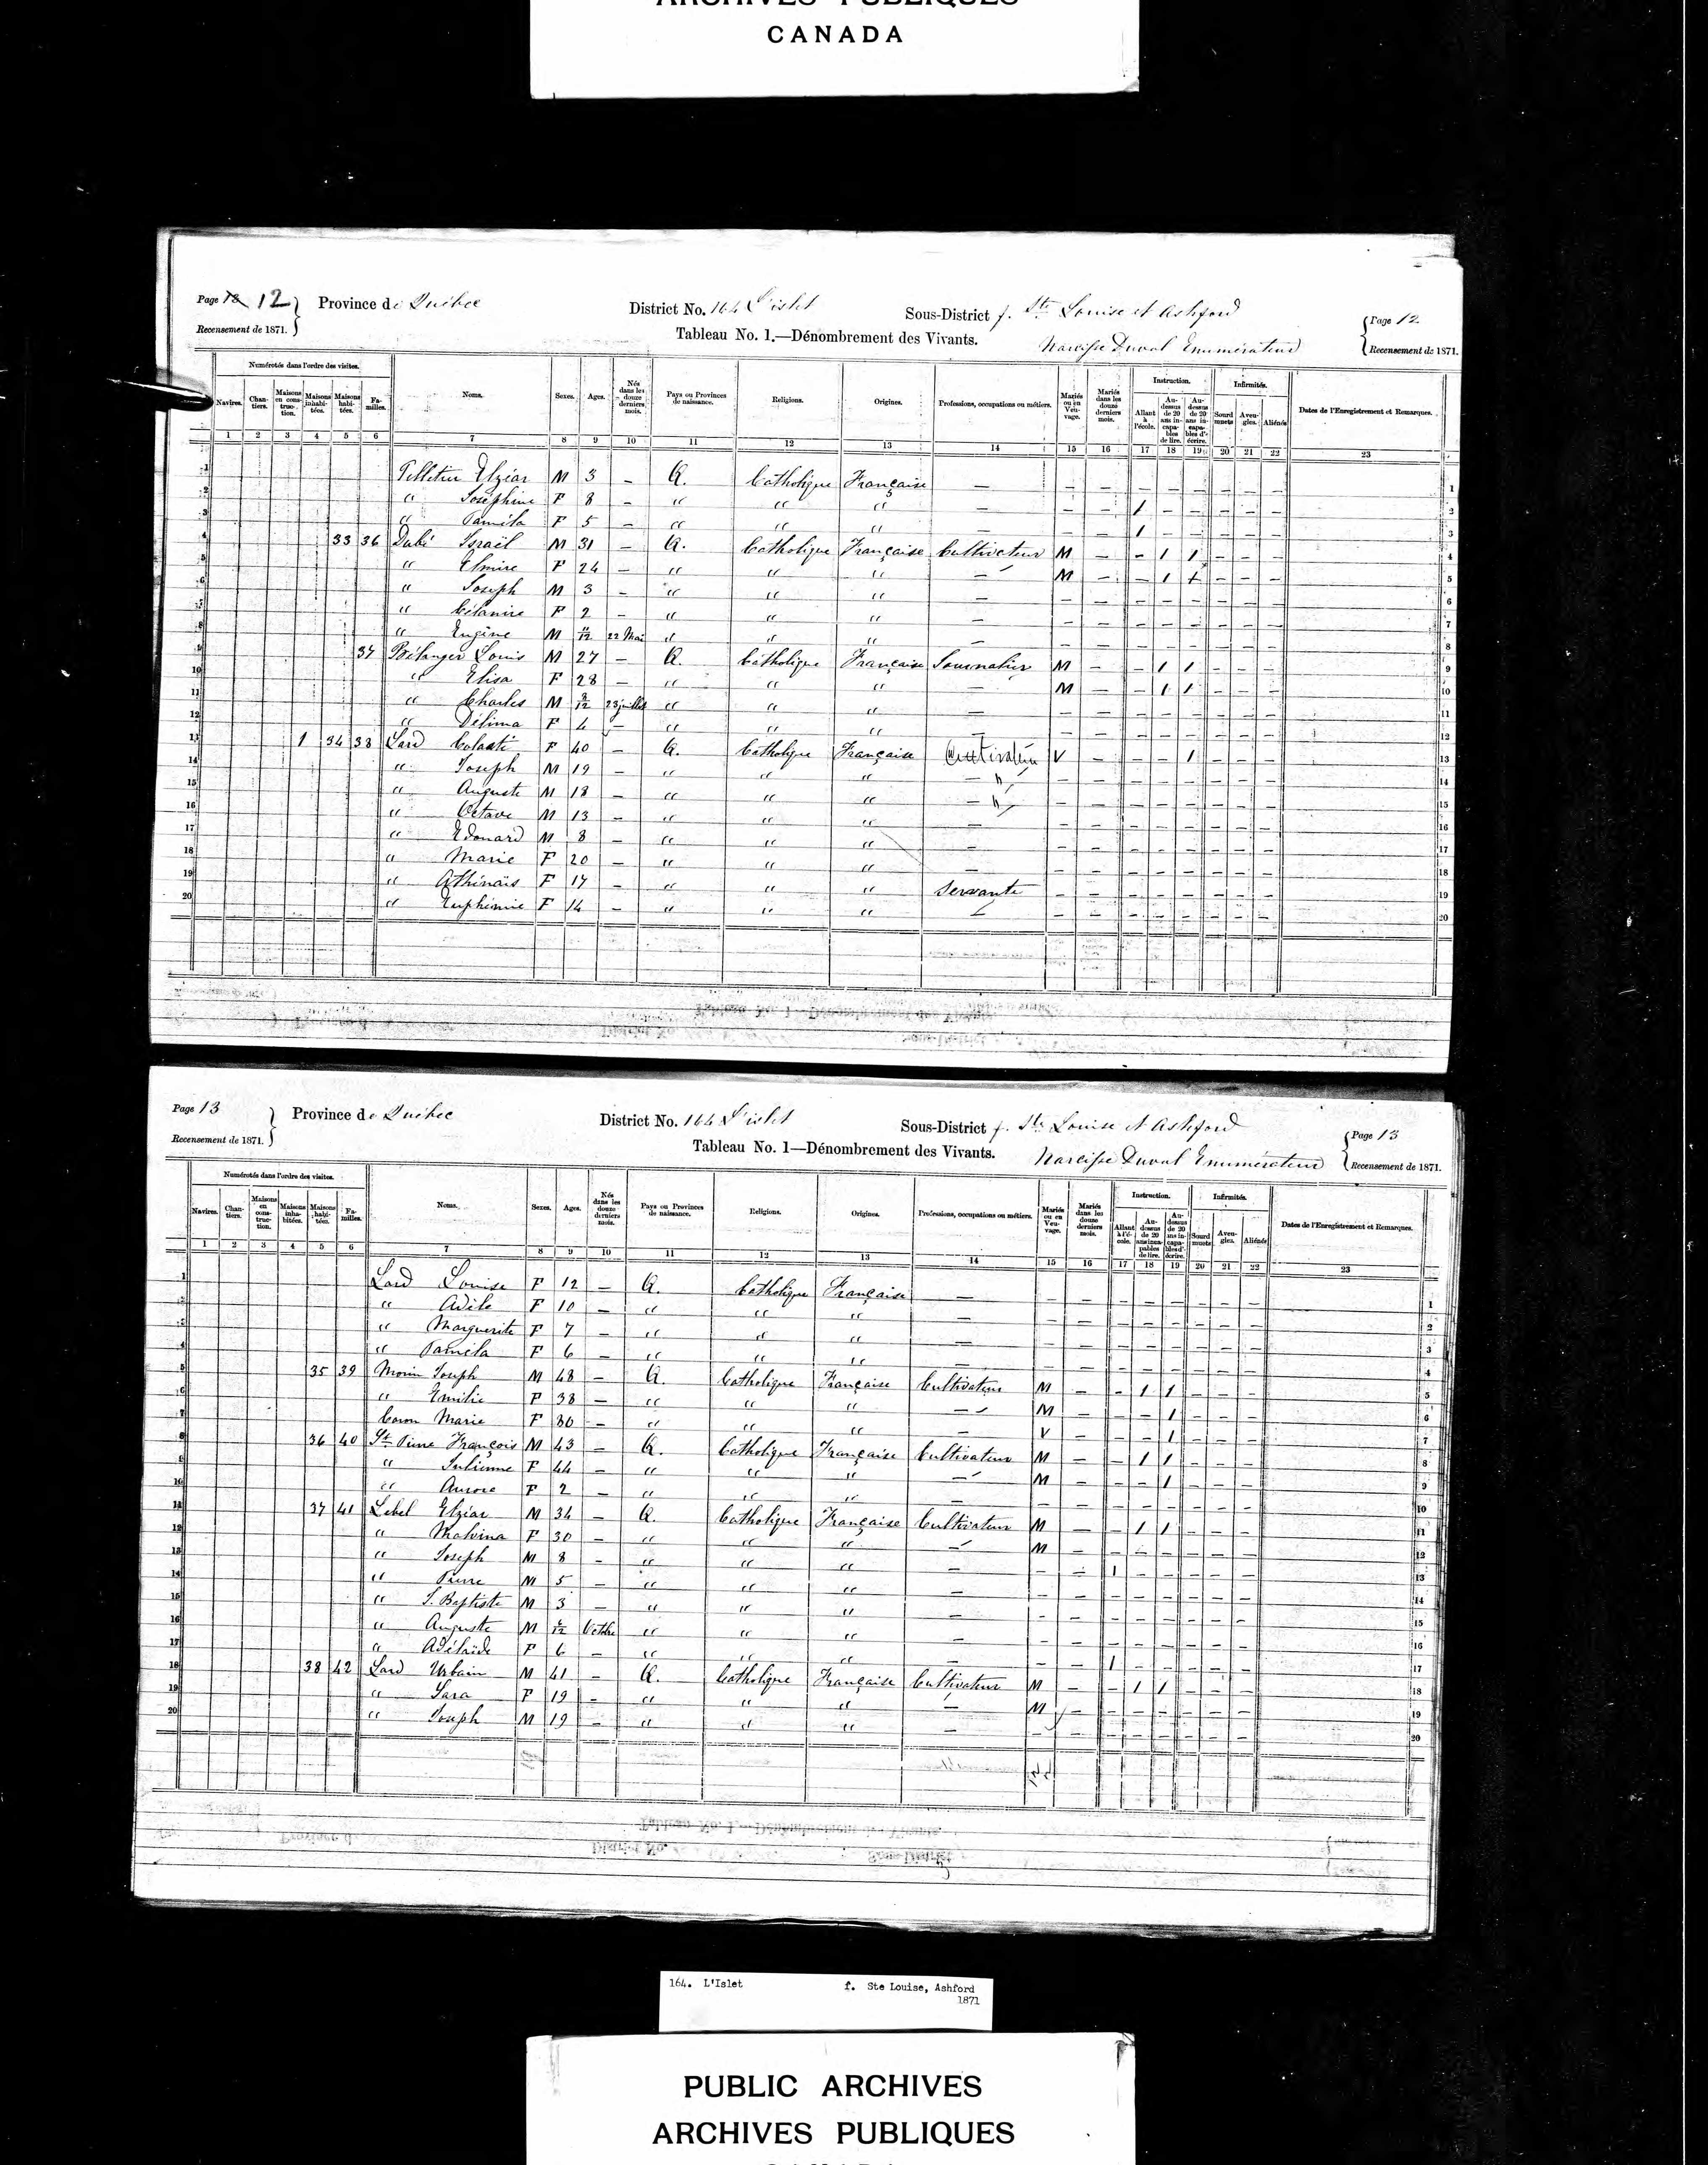 ARCHIVES PUBLIQUES
CANADA
Page 12 Province de Québec District No. 164 L'islet Sous-District f. Ste Louise et Ashford Page 12
Recensement de 1871. Tableau No. 1.—Dénombrement des Vivants. Narcisse Duval Enumérateur Recensement de 1871.
Numérotés dans l'ordre des visites. Noms. Sexes. Ages. Nés dans les douze derniers mois. Pays ou Provinces de naissance. Religions. Origines. Professions, occupations ou métiers. Mariés ou en Veuvage. Mariés dans les douze derniers mois. Instruction. Infirmités. Dates de l'Enregistrement et Remarques.
Navires. Chantiers. Maisons en construction. Maisons inhabitées. Maisons habitées. Familles. Allant à l'école. Au-dessus de 20 ans incapables de lire. Au-dessus de 20 ans incapables d'écrire. Sourd muets Aveugles. Aliénés
1 2 3 4 5 6 7 8 9 10 11 12 13 14 15 16 17 18 19 20 21 22 23
1 Pelletier Elzéar M 3 — Q. Catholique Française — — — — — — — — — 1
2 " Joséphine F 8 — " " " — — — 1 — — — — — 2
3 " Paméla F 5 — " " " — — — 1 — — — — — 3
4 33 36 Dubé Israël M 31 — Q. Catholique Française Cultivateur M — — 1 1 — — — 4
5 " Elmire F 24 — " " " — M — — 1 1 — — — 5
6 " Joseph M 3 — " " " — — — — — — — — — 6
7 " Célanire F 2 — " " " — — — — — — — — — 7
8 " Eugène M 11/12 22 Mai " " " — — — — — — — — — 8
9 37 Bélanger Louis M 27 — Q. Catholique Française Journalier M — — 1 1 — — — 9
10 " Elisa F 28 — " " " — M — — 1 1 — — — 10
11 " Charles M 8/12 23 juillet " " " — — — — — — — — — 11
12 " Délima F 4 — " " " — — — — — — — — — 12
13 1 34 38 Lard F 40 — Q. Catholique Française V — — — 1 — — — 13
14 " Joseph M 19 — " " " — " — — — — — — — — 14
15 " Auguste M 18 — " " " — " — — — — — — — — 15
16 " Octave M 13 — " " " — — — — — — — — — 16
17 " Edouard M 8 — " " " — — — — — — — — — 17
18 " Marie F 20 — " " " — — — — — — — — — 18
19 " Athénaïs F 17 — " " " Servante — — — — — — — — 19
20 " Euphémie F 14 — " " " — — — — — — — — — 20
Page 13 Province de Québec District No. 164 L'islet Sous-District f. Ste Louise et Ashford Page 13
Recensement de 1871. Tableau No. 1—Dénombrement des Vivants. Narcisse Duval Enumérateur Recensement de 1871.
Numérotés dans l'ordre des visites. Noms. Sexes. Ages. Nés dans les douze derniers mois. Pays ou Provinces de naissance. Religions. Origines. Professions, occupations ou métiers. Mariés ou en Veuvage. Mariés dans les douze derniers mois. Instruction. Infirmités. Dates de l'Enregistrement et Remarques.
Navires. Chantiers. Maisons en construction. Maisons inhabitées. Maisons habitées. Familles. Allant à l'école. Au-dessus de 20 ans incapables de lire. Au-dessus de 20 ans incapables d'écrire. Sourd muets Aveugles. Aliénés
1 2 3 4 5 6 7 8 9 10 11 12 13 14 15 16 17 18 19 20 21 22 23
1 Lard Louise F 12 — Q. Catholique Française — — — — — — — — — 1
2 " Adèle F 10 — " " " — — — — — — — — — 2
3 " Marguerite F 7 — " " " — — — — — — — — — 3
4 " Paméla F 6 — " " " — — — — — — — — — 4
5 35 39 Morin Joseph M 48 — Q. Catholique Française Cultivateur M — — 1 1 — — — 5
6 " Emilie F 38 — " " " — M — — — 1 — — — 6
7 Caron Marie F 80 — " " " — V — — — 1 — — — 7
8 36 40 St Pierre François M 43 — Q. Catholique Française Cultivateur M — — 1 1 — — — 8
9 " Julienne F 44 — " " " — M — — — 1 — — — 9
10 " Aurore F 2 — " " " — — — — — — — — — 10
11 37 41 Lebel Elzéar M 34 — Q. Catholique Française Cultivateur M — — 1 1 — — — 11
12 " Malvina F 30 — " " " — M — — — — — — — 12
13 " Joseph M 8 — " " " — — — 1 — — — — — 13
14 " Pierre M 5 — " " " — — — — — — — — — 14
15 " J. Baptiste M 3 — " " " — — — — — — — — — 15
16 " Auguste M 6/12 Octobre " " " — — — — — — — — — 16
17 " Adélaïde F 6 — " " " — — — 1 — — — — — 17
18 38 42 Lard Urbain M 41 — Q. Catholique Française Cultivateur M — — 1 1 — — — 18
19 " Sara F 19 — " " " — M — — — — — — — 19
20 " Joseph M 19 — " " " — — — — — — — — — 20
164. L'Islet f. Ste Louise, Ashford
1871
PUBLIC ARCHIVES
ARCHIVES PUBLIQUES
CANADA